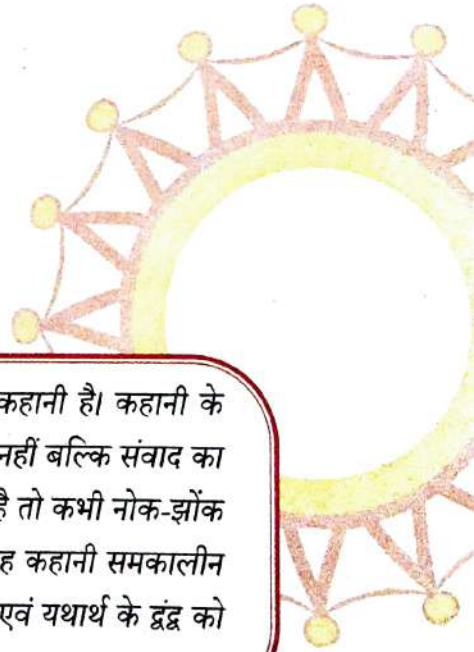 कहानी है। कहानी के
नहीं बल्कि संवाद का
है तो कभी नोक-झोंक
ह कहानी समकालीन
एवं यथार्थ के द्वंद्व को